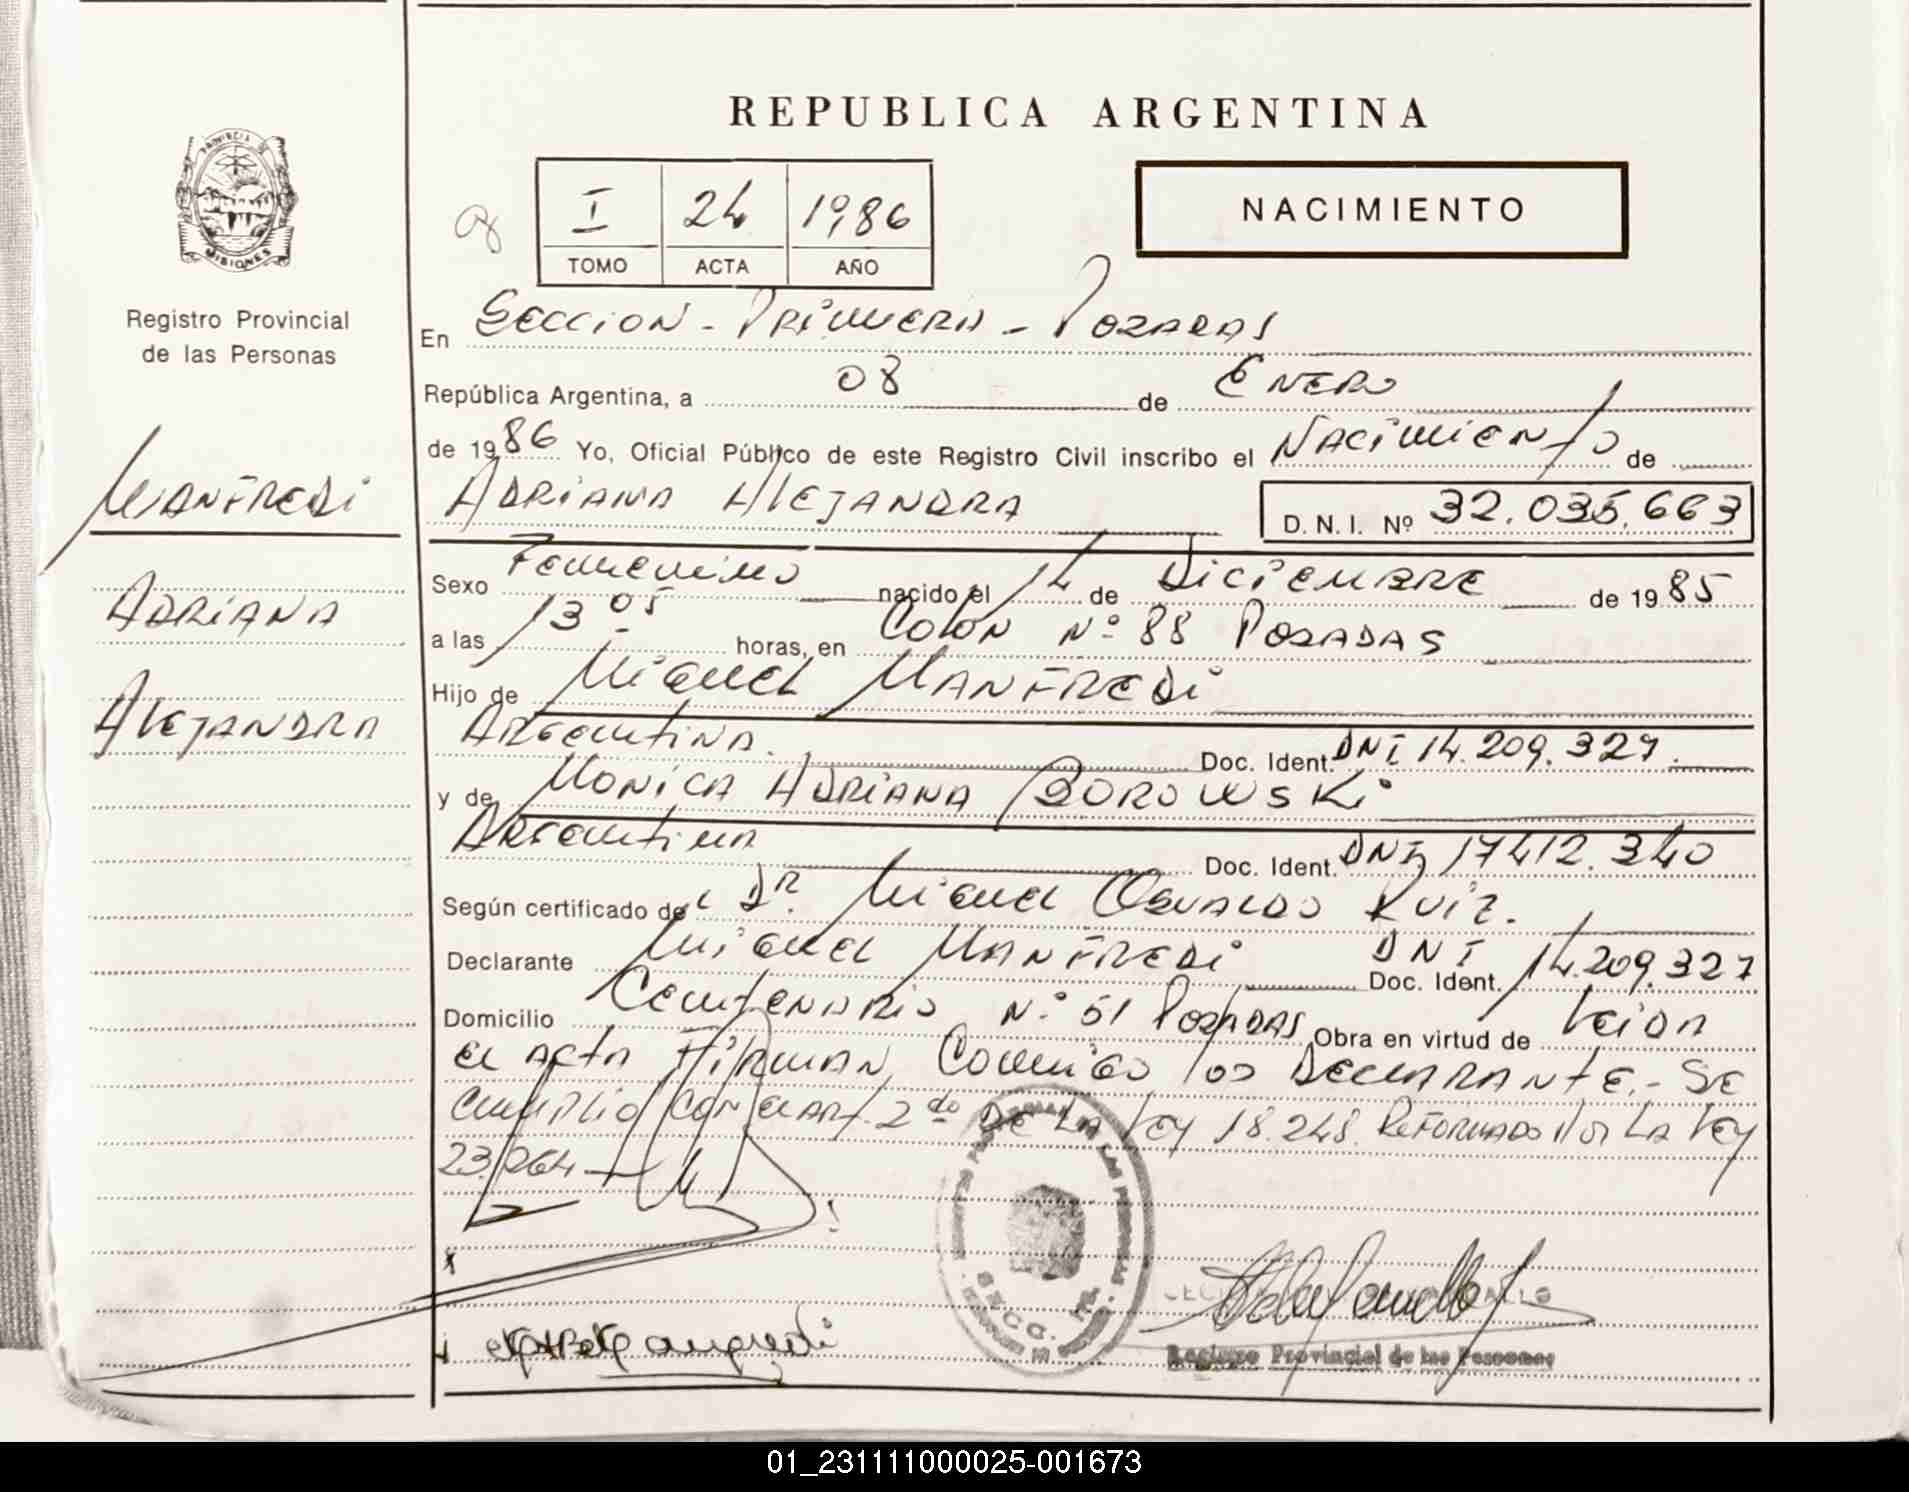 REPUBLICA ARGENTINA
PROVINCIA DE
MISIONES
I 24 1986
TOMO ACTA AÑO
NACIMIENTO
Registro Provincial
de las Personas
En SECCION - PRIMERA - POSADAS
República Argentina, a 08 de ENERO
de 1986 Yo, Oficial Público de este Registro Civil inscribo el NACIMIENTO de
MANFREDI
ADRIANA ALEJANDRA D. N. I. Nº 32.035.663
Sexo Femenino nacido el 14 de DICIEMBRE de 1985
ADRIANA
a las 13 05 horas, en COLON Nº 88 POSADAS
Hijo de MIGUEL MANFREDI
ALEJANDRA
ARGENTINA. Doc. Ident. DNI 14.209.327.
y de MONICA ADRIANA BOROWSKi
ARGENTINA Doc. Ident. DNI 17412.340
Según certificado del DR. MIGUEL OSVALDO RUIZ.
Declarante MIGUEL MANFREDI Doc. Ident. DNI 14.209.327
Domicilio CENTENARIO Nº 51 POSADAS Obra en virtud de LEIDA
EL ACTA FIRMAN COMMIGO LOS DECLARANTE.- SE
CUMPLIO CON EL ART. 2do DE LA LEY 18.248. REFORMADO POR LA LEY
23.264
SECC.
Registro Provincial de las Personas
01_231111000025-001673